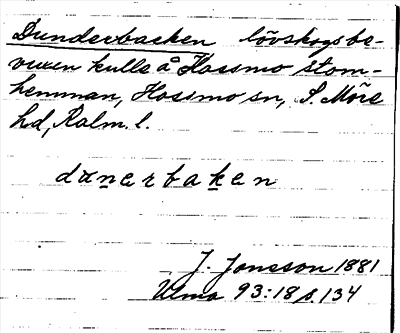 Dunderbacken lövskogsbe-
vuxen kulle å Hossmo stom-
hemman, Hossmo sn, S. Möre
hd, Kalm. l.
dɯnerbaken
J. Jonsson 1881
Ulma 93:18 s. 134